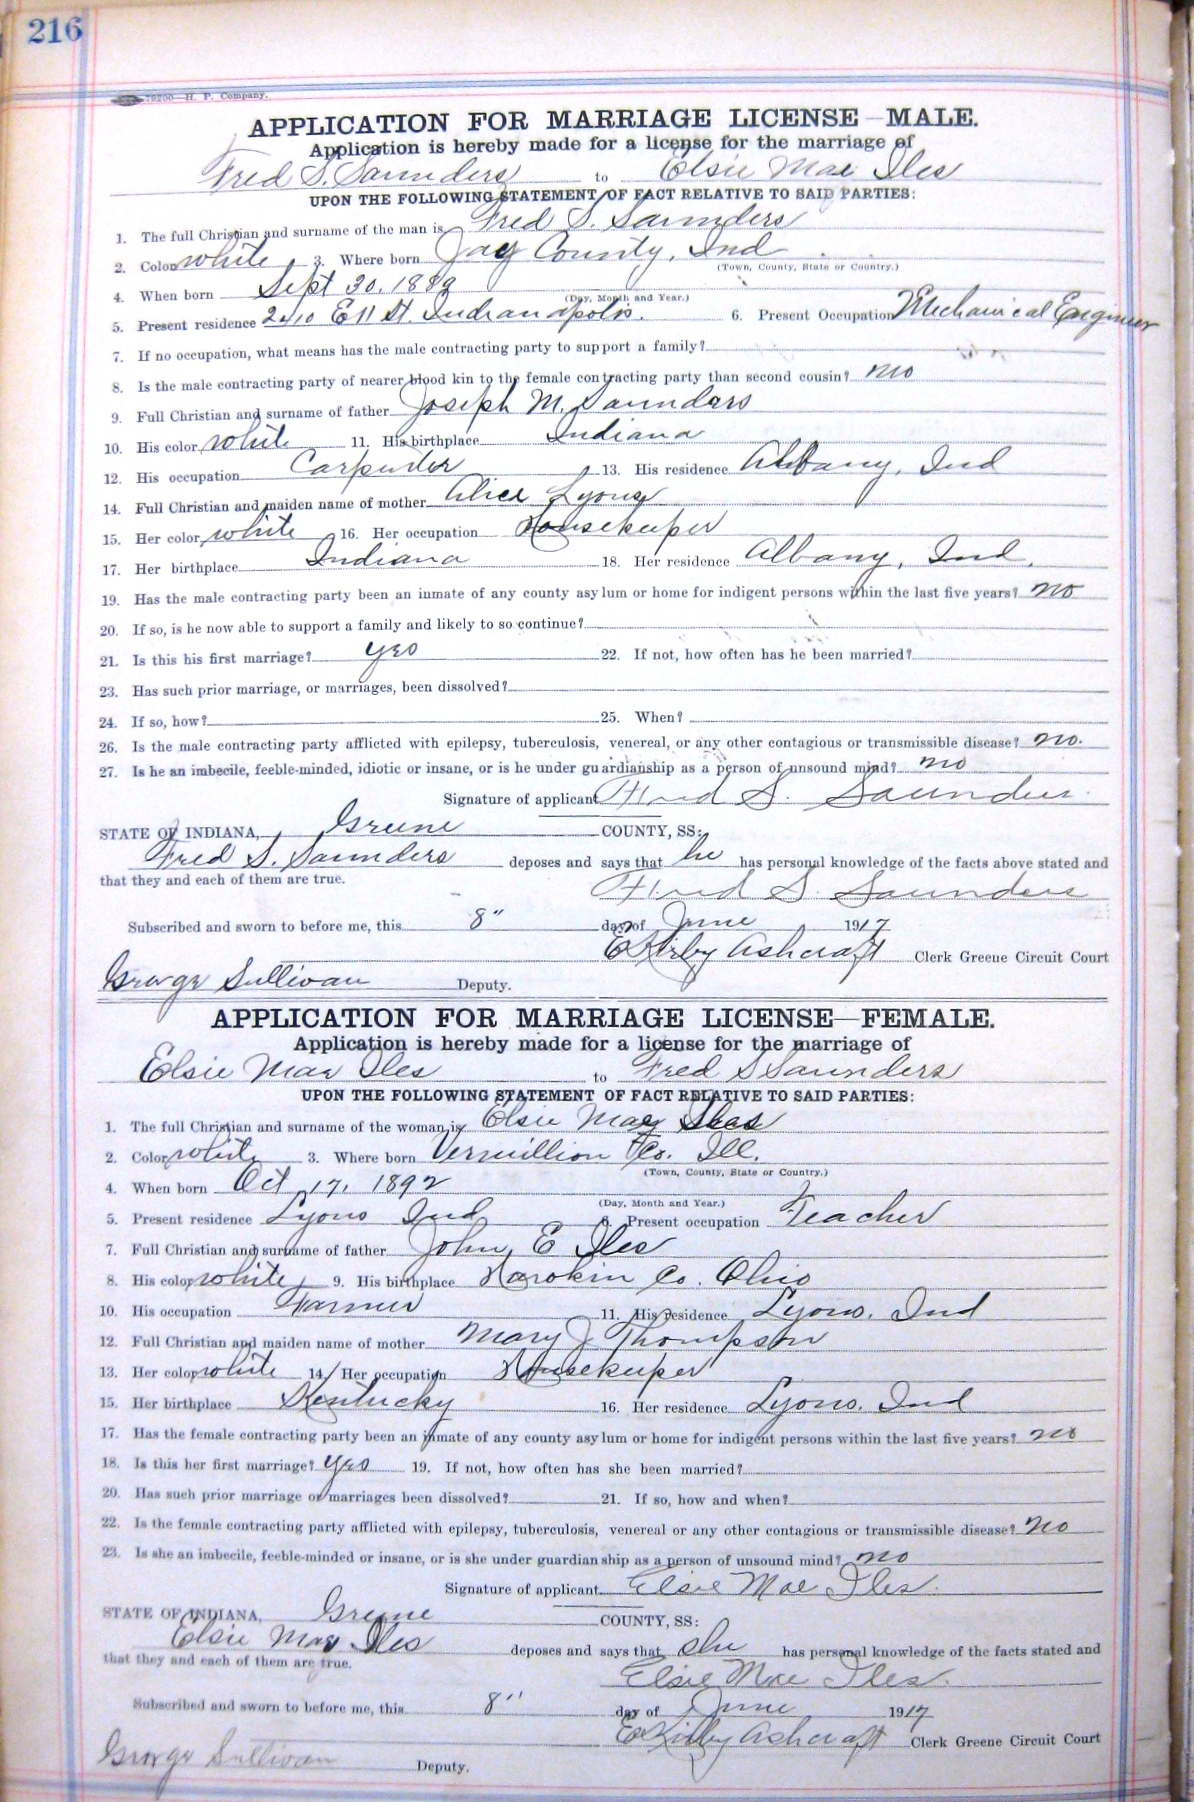 216
79200—H. P. Company.
APPLICATION FOR MARRIAGE LICENSE—MALE.
Application is hereby made for a license for the marriage of
Fred S. Saunders to Elsie Mae Iles
UPON THE FOLLOWING STATEMENT OF FACT RELATIVE TO SAID PARTIES:
1. The full Christian and surname of the man is Fred S. Saunders
2. Color white 3. Where born Jay County, Ind
(Town, County, State or Country.)
4. When born Sept 30. 1889
(Day, Month and Year.)
5. Present residence E 11 St. Indianapolis. 6. Present Occupation Mechanical Engineer
7. If no occupation, what means has the male contracting party to support a family?
8. Is the male contracting party of nearer blood kin to the female contracting party than second cousin? no
9. Full Christian and surname of father Joseph M. Saunders
10. His color white 11. His birthplace Indiana
12. His occupation Carpenter 13. His residence Albany, Ind
14. Full Christian and maiden name of mother Alice Lyons
15. Her color white 16. Her occupation Housekeeper
17. Her birthplace Indiana 18. Her residence Albany, Ind.
19. Has the male contracting party been an inmate of any county asylum or home for indigent persons within the last five years? no
20. If so, is he now able to support a family and likely to so continue?
21. Is this his first marriage? yes 22. If not, how often has he been married?
23. Has such prior marriage, or marriages, been dissolved?
24. If so, how? 25. When?
26. Is the male contracting party afflicted with epilepsy, tuberculosis, venereal, or any other contagious or transmissible disease? no.
27. Is he an imbecile, feeble-minded, idiotic or insane, or is he under guardianship as a person of unsound mind? no
Signature of applicant Fred S. Saunders
STATE OF INDIANA, Greene COUNTY, SS:
Fred S. Saunders deposes and says that he has personal knowledge of the facts above stated and
that they and each of them are true. Fred S. Saunders
Subscribed and sworn to before me, this 8" day of June 1917
E Kirby Ashcraft Clerk Greene Circuit Court
George Sullivan Deputy.
APPLICATION FOR MARRIAGE LICENSE—FEMALE.
Application is hereby made for a license for the marriage of
Elsie Mae Iles to Fred S Saunders
UPON THE FOLLOWING STATEMENT OF FACT RELATIVE TO SAID PARTIES:
1. The full Christian and surname of the woman is Elsie Mae Iles
2. Color white 3. Where born Vermillion Co. Ill.
(Town, County, State or Country.)
4. When born Oct 17, 1892
(Day, Month and Year.)
5. Present residence Lyons Ind 6. Present occupation Teacher
7. Full Christian and surname of father John E Iles
8. His color white 9. His birthplace Co. Ohio
10. His occupation Farmer 11. His residence Lyons, Ind
12. Full Christian and maiden name of mother Mary J Thompson
13. Her color white 14. Her occupation Housekeeper
15. Her birthplace Kentucky 16. Her residence Lyons, Ind
17. Has the female contracting party been an inmate of any county asylum or home for indigent persons within the last five years? no
18. Is this her first marriage? yes 19. If not, how often has she been married?
20. Has such prior marriage or marriages been dissolved? 21. If so, how and when?
22. Is the female contracting party afflicted with epilepsy, tuberculosis, venereal or any other contagious or transmissible disease? no
23. Is she an imbecile, feeble-minded or insane, or is she under guardianship as a person of unsound mind? no
Signature of applicant Elsie Mae Iles.
STATE OF INDIANA, Greene COUNTY, SS:
Elsie Mae Iles deposes and says that she has personal knowledge of the facts stated and
that they and each of them are true. Elsie Mae Iles.
Subscribed and sworn to before me, this 8" day of June 1917
E Kirby Ashcraft Clerk Greene Circuit Court
George Sullivan Deputy.